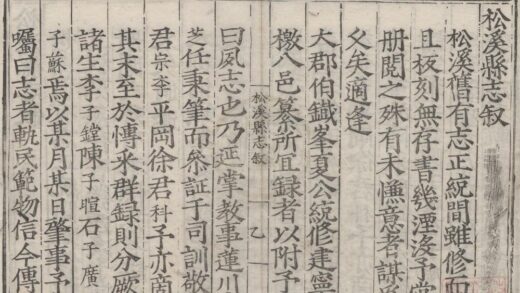 松溪縣志叙
松溪舊有志正統間雖修而
且板刻無存書幾湮没予嘗
册閱之殊有未慊意者謀
久矣適逢
大郡伯鐵峯夏公統修建寧
檄八邑纂所宜録者以附予
松溪縣志叙 乙
曰夙志也乃延掌教事蓮川
芝任秉筆而叅証于司訓敬
君宗李平岡徐君科予亦啇
其末至於慱采群録則分厥
諸生李子鏜陳子暄石子廣
子蘇焉以某月某日肇事予
囑曰志者軌民範物信今傳